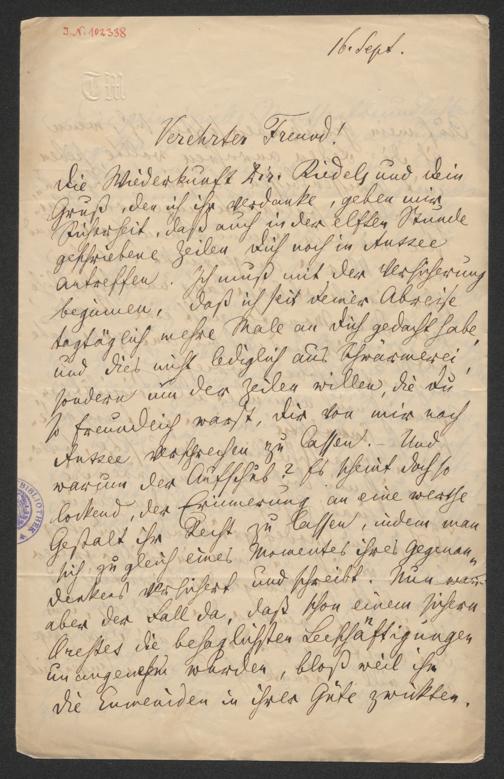 I.N. 102338
16. Sept.
TM
Verehrter Freund!
Die Wiederkunft Dir. Riedels und dein
Gruß, den ich ihr verdanke, geben mir
Sicherheit, daß auch in der elften Stunde
geschriebene Zeilen Dich noch in Aussee
antreffen. Ich muß mit der Versicherung
beginnen, daß ich seit Deiner Abreise
tagtäglich mehre Male an Dich gedacht habe,
und dies nicht lediglich aus Schwärmerei,
sondern um der Zeilen willen, die Du
so freundlich warst, Dir von mir nach
Aussee versprechen zu lassen. – Und
warum der Aufschub? Es scheint doch so
lockend, der Erinnerung an eine werthe
Gestalt ihr Recht zu lassen, indem man
sich zugleich eines Momentes ihres Gegenan-
denkens versichert und schreibt. Nun war
aber der Fall da, daß schon einem sichern
Orestes die behaglichsten Beschäftigungen
unangenehm wurden, bloß weil ihn
die Eumeniden in ihrer Güte zwickten.
BIBLIOTHEK